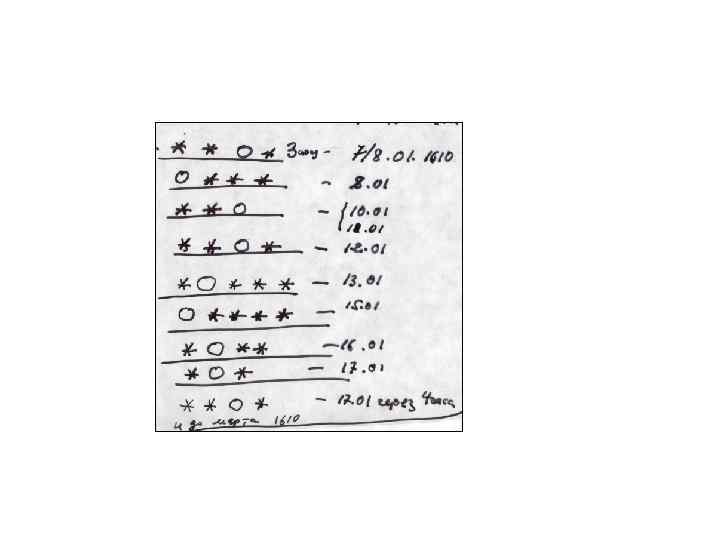 * * O * Зачу - 7/8.01.1610
O * * * - 8.01
* * O - { 10.01
11.01
* * O * - 12.01
* O * * * - 13.01
O * * * * - 15.01
* O * * - 16.01
* O * - 17.01
* * O * - 17.01 через 4 часа
и до марта 1610